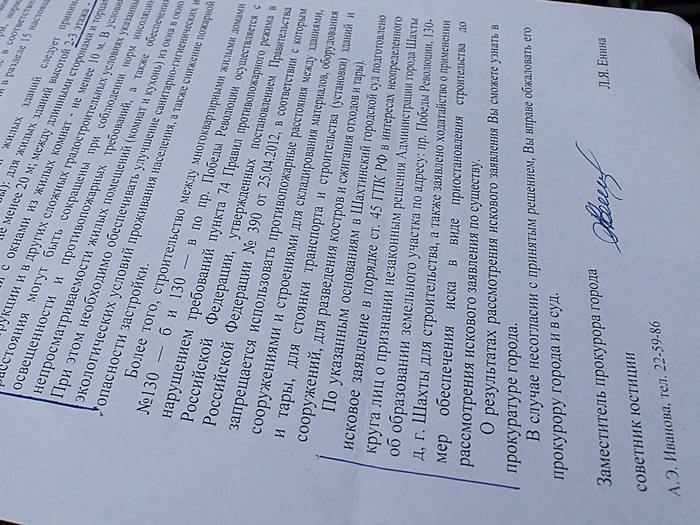 жилых зданий следует
для жилых зданий высотой 2-3 этажа
не менее 20 м; между длинными сторонами и
с окнами из жилых комнат - не менее 10 м. В условиях
и в других сложных градостроительных условиях, указанные
расстояния могут быть сокращены при соблюдении норм инсоляции
освещенности и противопожарных требований, а также обеспечении
непросматриваемости жилых помещений (комнат и кухонь) из окна в окно.
При этом необходимо обеспечивать улучшение санитарно-гигиенических и
экологических условий проживания населения, а также снижение пожарной
опасности застройки.
Более того, строительство между многоквартирными жилыми домами
№130 – б и 130 – в по пр. Победы Революции осуществляется с
нарушением требований пункта 74 Правил противопожарного режима в
Российской Федерации, утвержденных постановлением Правительства
Российской Федерации № 390 от 25.04.2012, в соответствии с которым
запрещается использовать противопожарные расстояния между зданиями,
сооружениями и строениями для складирования материалов, оборудования
и тары, для стоянки транспорта и строительства (установки) зданий и
сооружений, для разведения костров и сжигания отходов и тары.
По указанным основаниям в Шахтинский городской суд подготовлено
исковое заявление в порядке ст. 45 ГПК РФ в интересах неопределенного
круга лиц о признании незаконным решения Администрации города Шахты
об образовании земельного участка по адресу: пр. Победы Революции, 130-
д, г. Шахты для строительства, а также заявлено ходатайство о применении
мер обеспечения иска в виде приостановления строительства до
рассмотрения искового заявления по существу.
О результатах рассмотрения искового заявления Вы сможете узнать в
прокуратуре города.
В случае несогласии с принятым решением, Вы вправе обжаловать его
прокурору города и в суд.
Заместитель прокурора города
советник юстиции
Л.Я. Енина
А.Э. Иванова. тел. 22-59-86